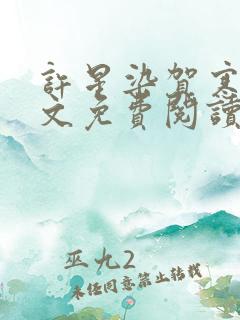 許星染賀寒
文免費閱讀
巫九2
未經同意禁止轉載